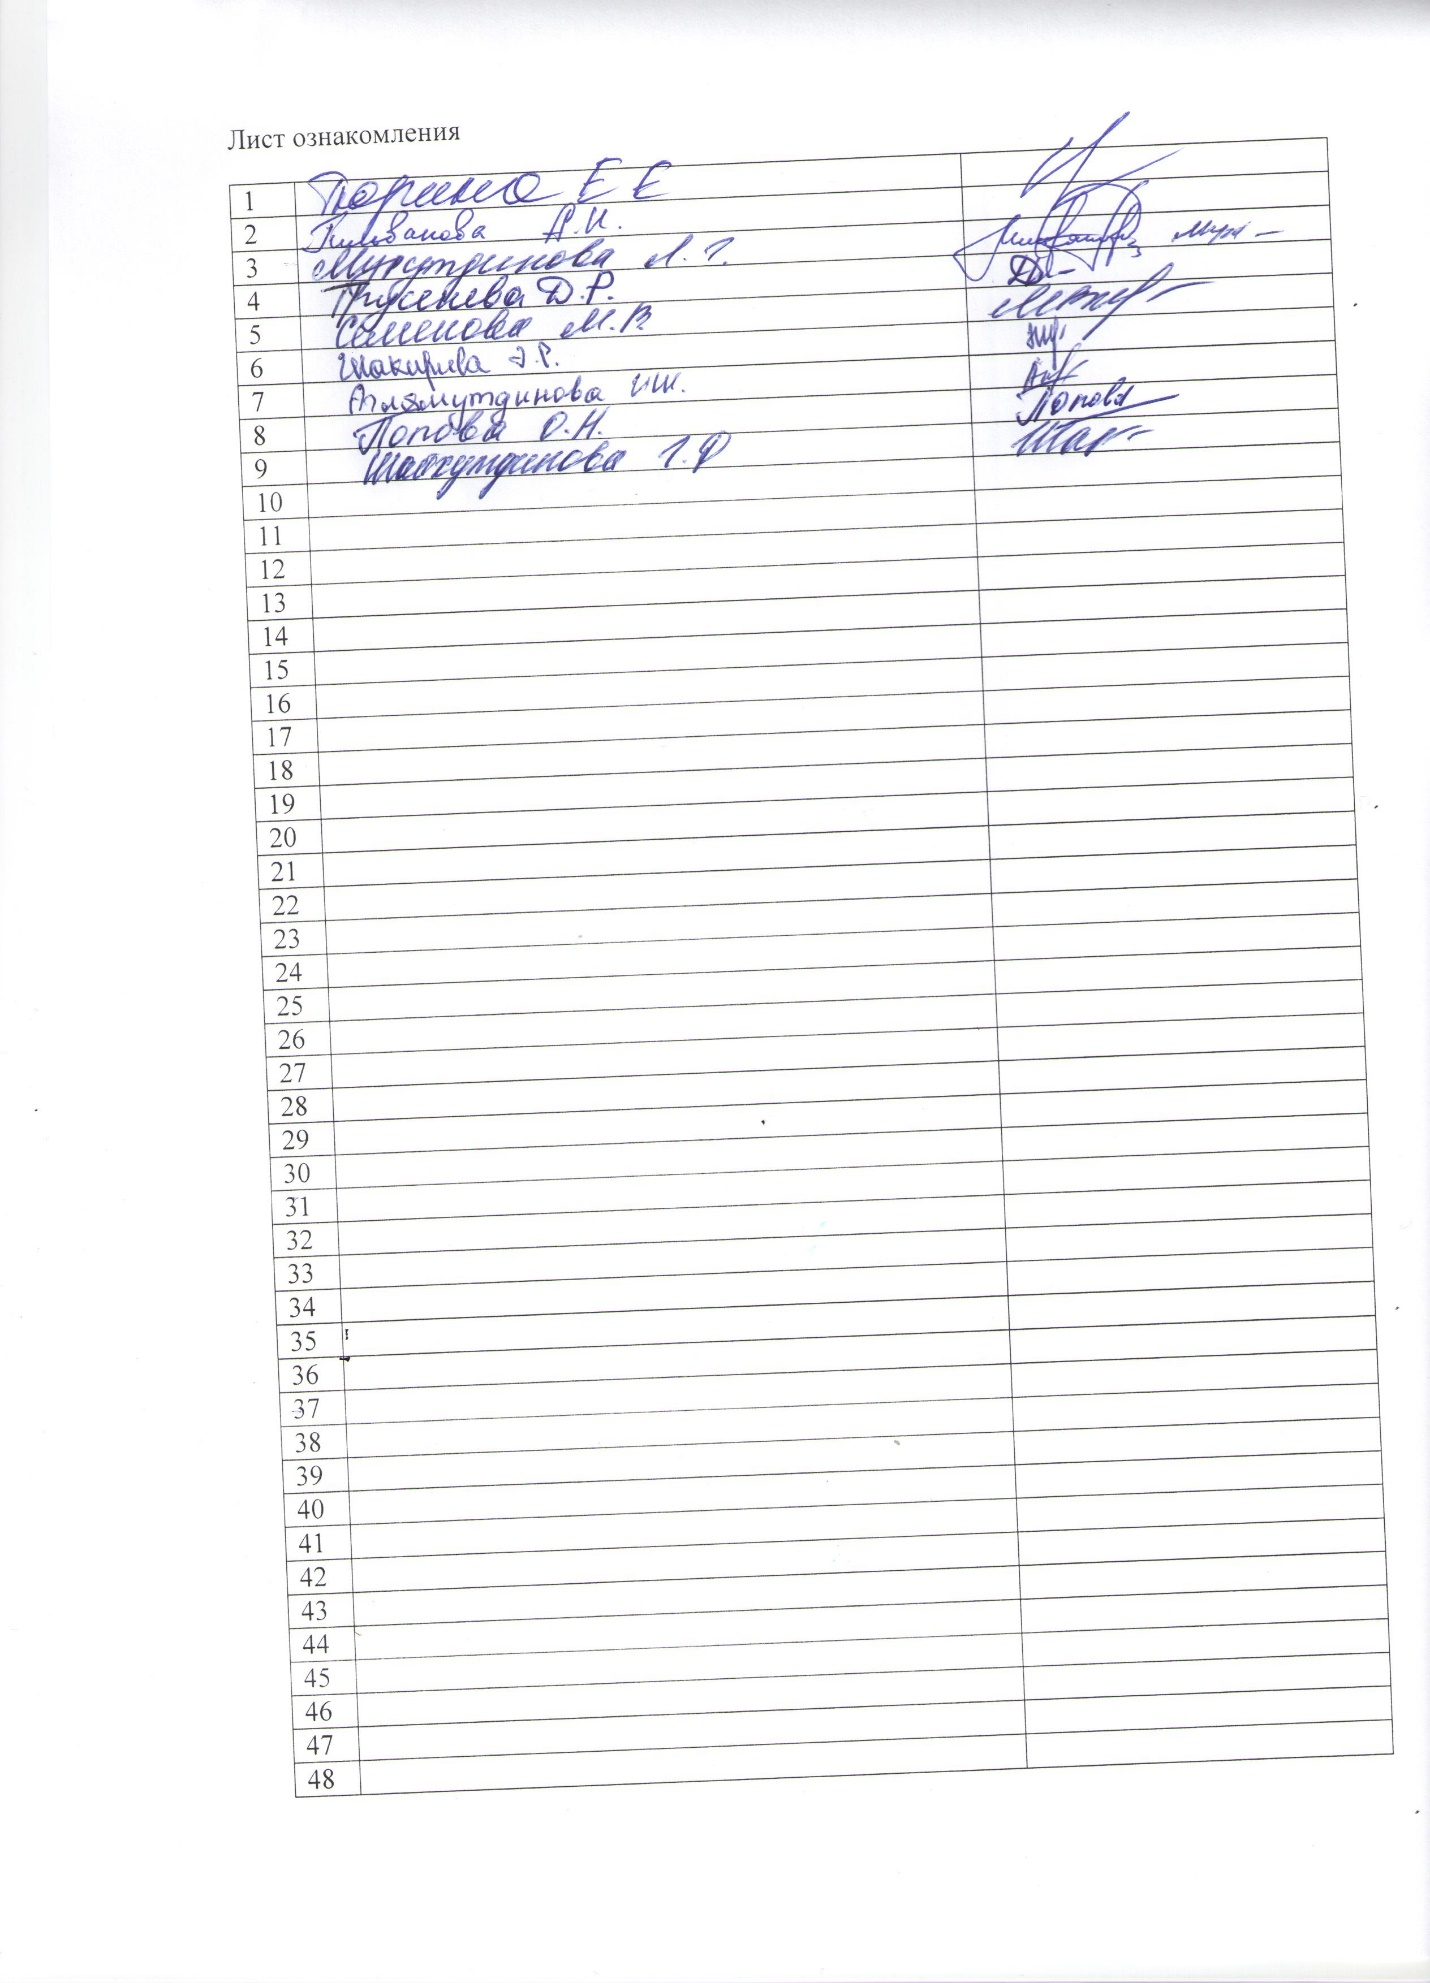 Лист ознакомления
1 Тюрина Е Е
2 А.И.
3 Мухутдинова Л. Г.
4 Д.Р.
5 Семенова М.В
6 Шакирова Э.Р.
7 Алямутдинова И.Ш.
8 Попова О.Н. Попова
9 Шайхутдинова Г.Ф
10
11
12
13
14
15
16
17
18
19
20
21
22
23
24
25
26
27
28
29
30
31
32
33
34
35
36
37
38
39
40
41
42
43
44
45
46
47
48